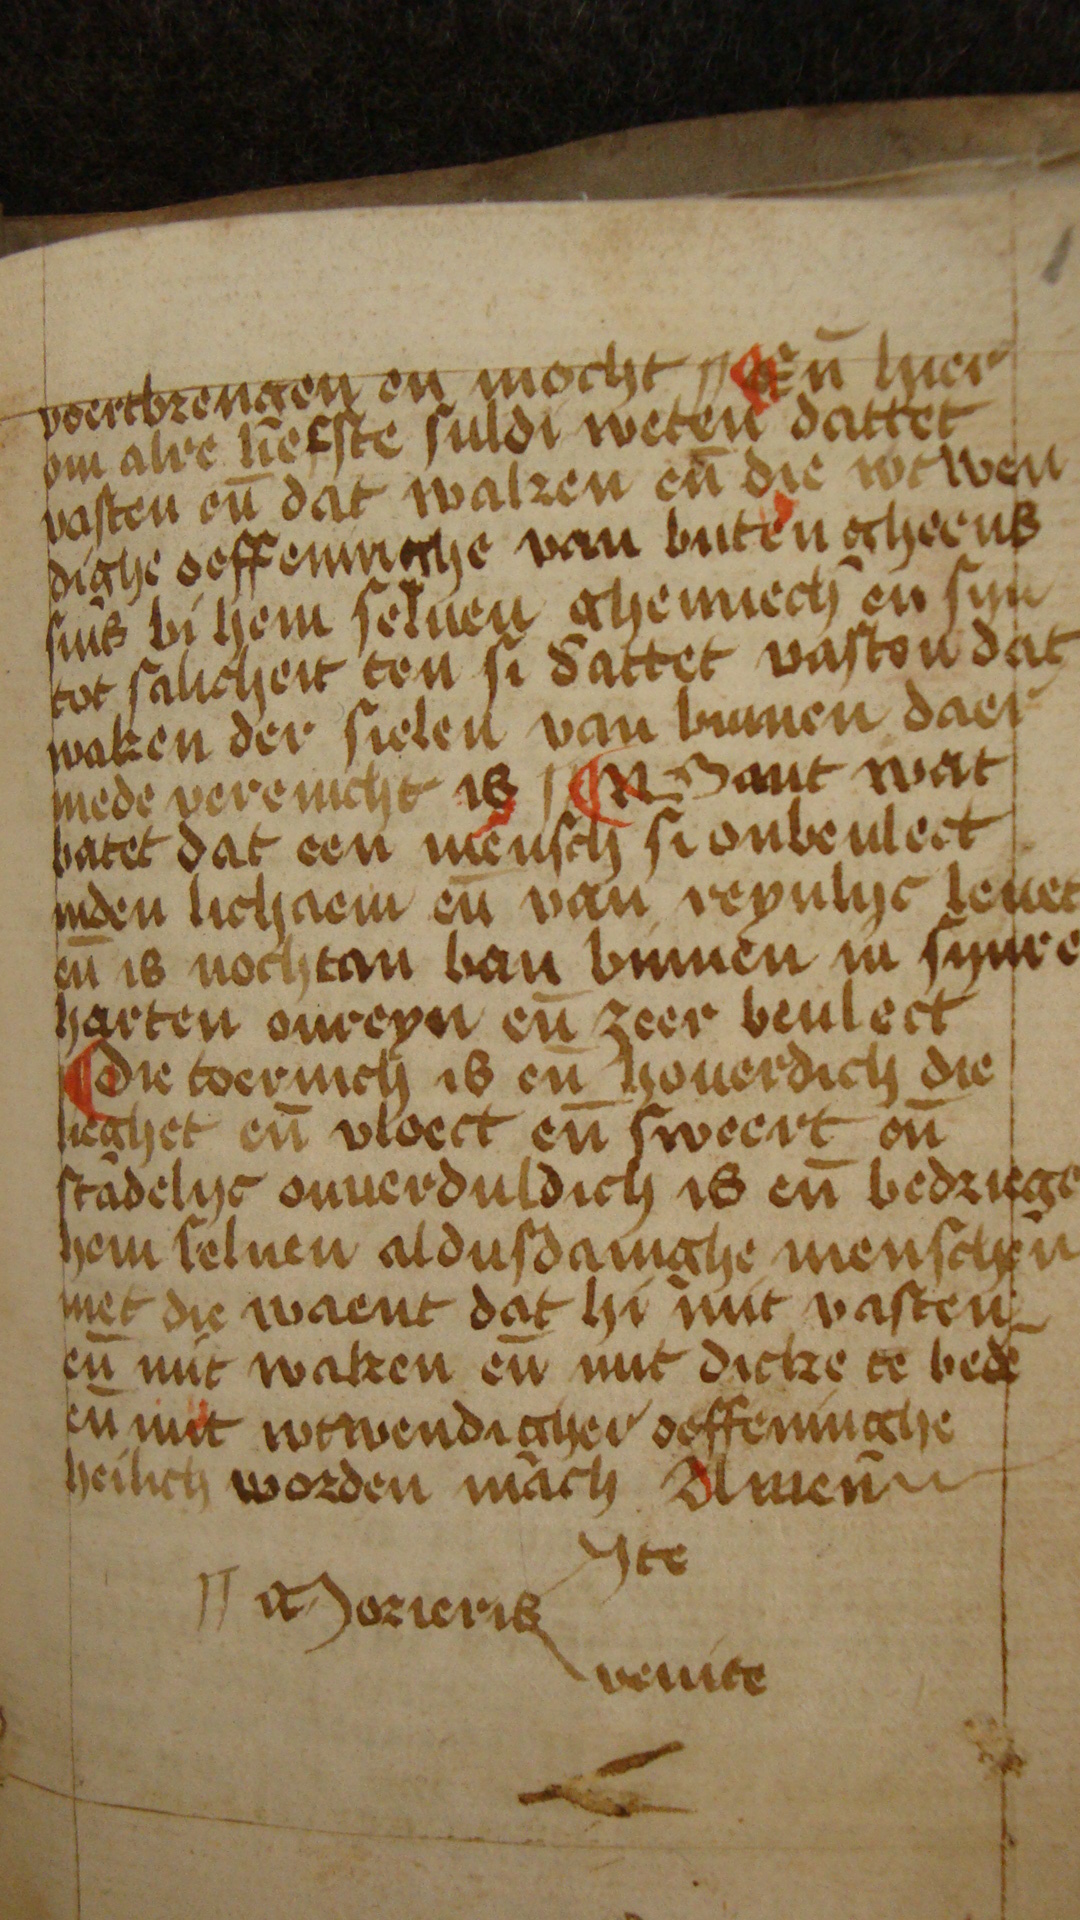 voertbrengen en mocht // En̄ hier
om alre liefste suldi weten dattet
vasten en̄ dat walken en̄ die wtwen
dighe oeffeninghe van buten gheens
sins bi hem seluen ghenoech en sijn
tot salicheit ten si dattet vasten dat
waken der sielen van binnen daer
mede verenicht is // Want wat
batet dat een mensch si onbeulect
inden lichaem en̄ van reynlijc leuet
en̄ is nochtan van binnen in sijnre
harten onreyn en̄ zeer beulect
Die toernich is en̄ houerdich die
lieghet en̄ vloect en̄ sweert en̄
stādelijc onuerduldich is en̄ bedrieget
hem seluen aldusdanighe menschen
niet die waent dat hi mit vasten
en̄ mit waken en̄ mit dicke te bedē
en̄ mit wtwendigher oeffeninghe
heilich worden mach Amen
Ite
// Morieris
venite